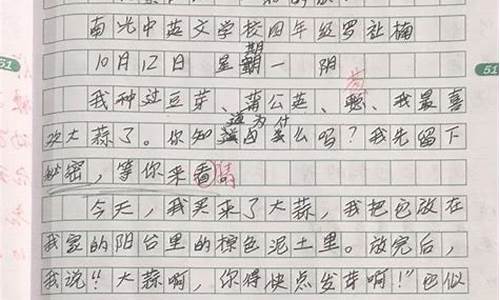 南光中英文学校四年级罗祉楠
10月12日 星期一 阴
我种过豆芽、蒲公英、葱、我最喜
欢大蒜了。你知道为什么吗？我先留下
秘密，等你来猜。
今天，我买来了大蒜，我把它放在
我家的阳台里的棕色泥土里。放完后，
我说“大蒜啊，你得快点发芽啊！”它似
51
51